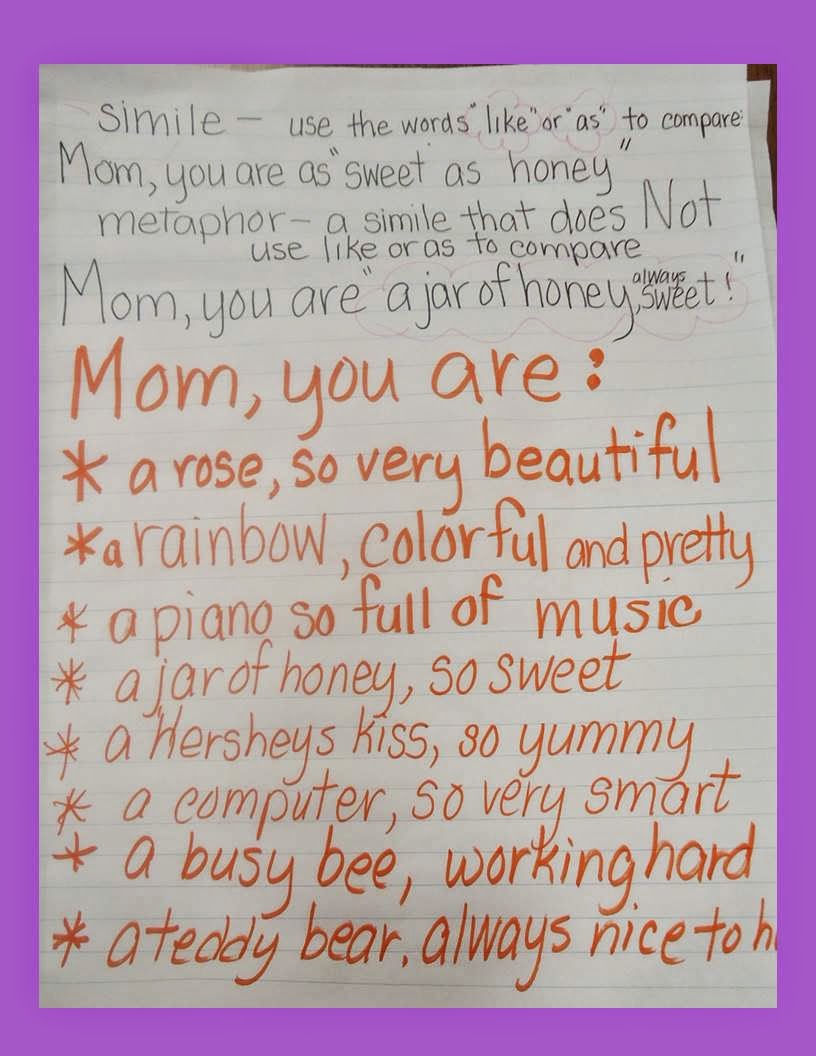 simile - use the words "like" or "as" to compare:
Mom, you are as "sweet as honey"
metaphor - a simile that does Not
use like or as to compare
Mom, you are "a jar of honey, always sweet!"
Mom, you are:
* a rose, so very beautiful
* a rainbow, colorful and pretty
* a piano so full of music
* a jar of honey, so sweet
* a Hersheys kiss, so yummy
* a computer, so very smart
* a busy bee, working hard
* a teddy bear, always nice to